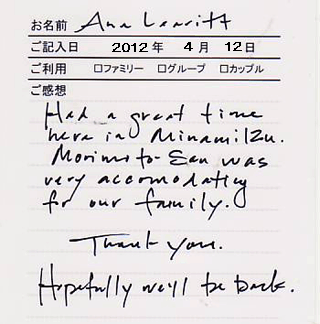 お名前 Ana Leavitt
ご記入日 2012年 4月 12日
ご利用 □ファミリー □グループ □カップル
ご感想
Had a great time
here in MinamiIzu.
Morimoto-San was
very accomodating
for our family.
Thank you.
Hopefully we'll be back.